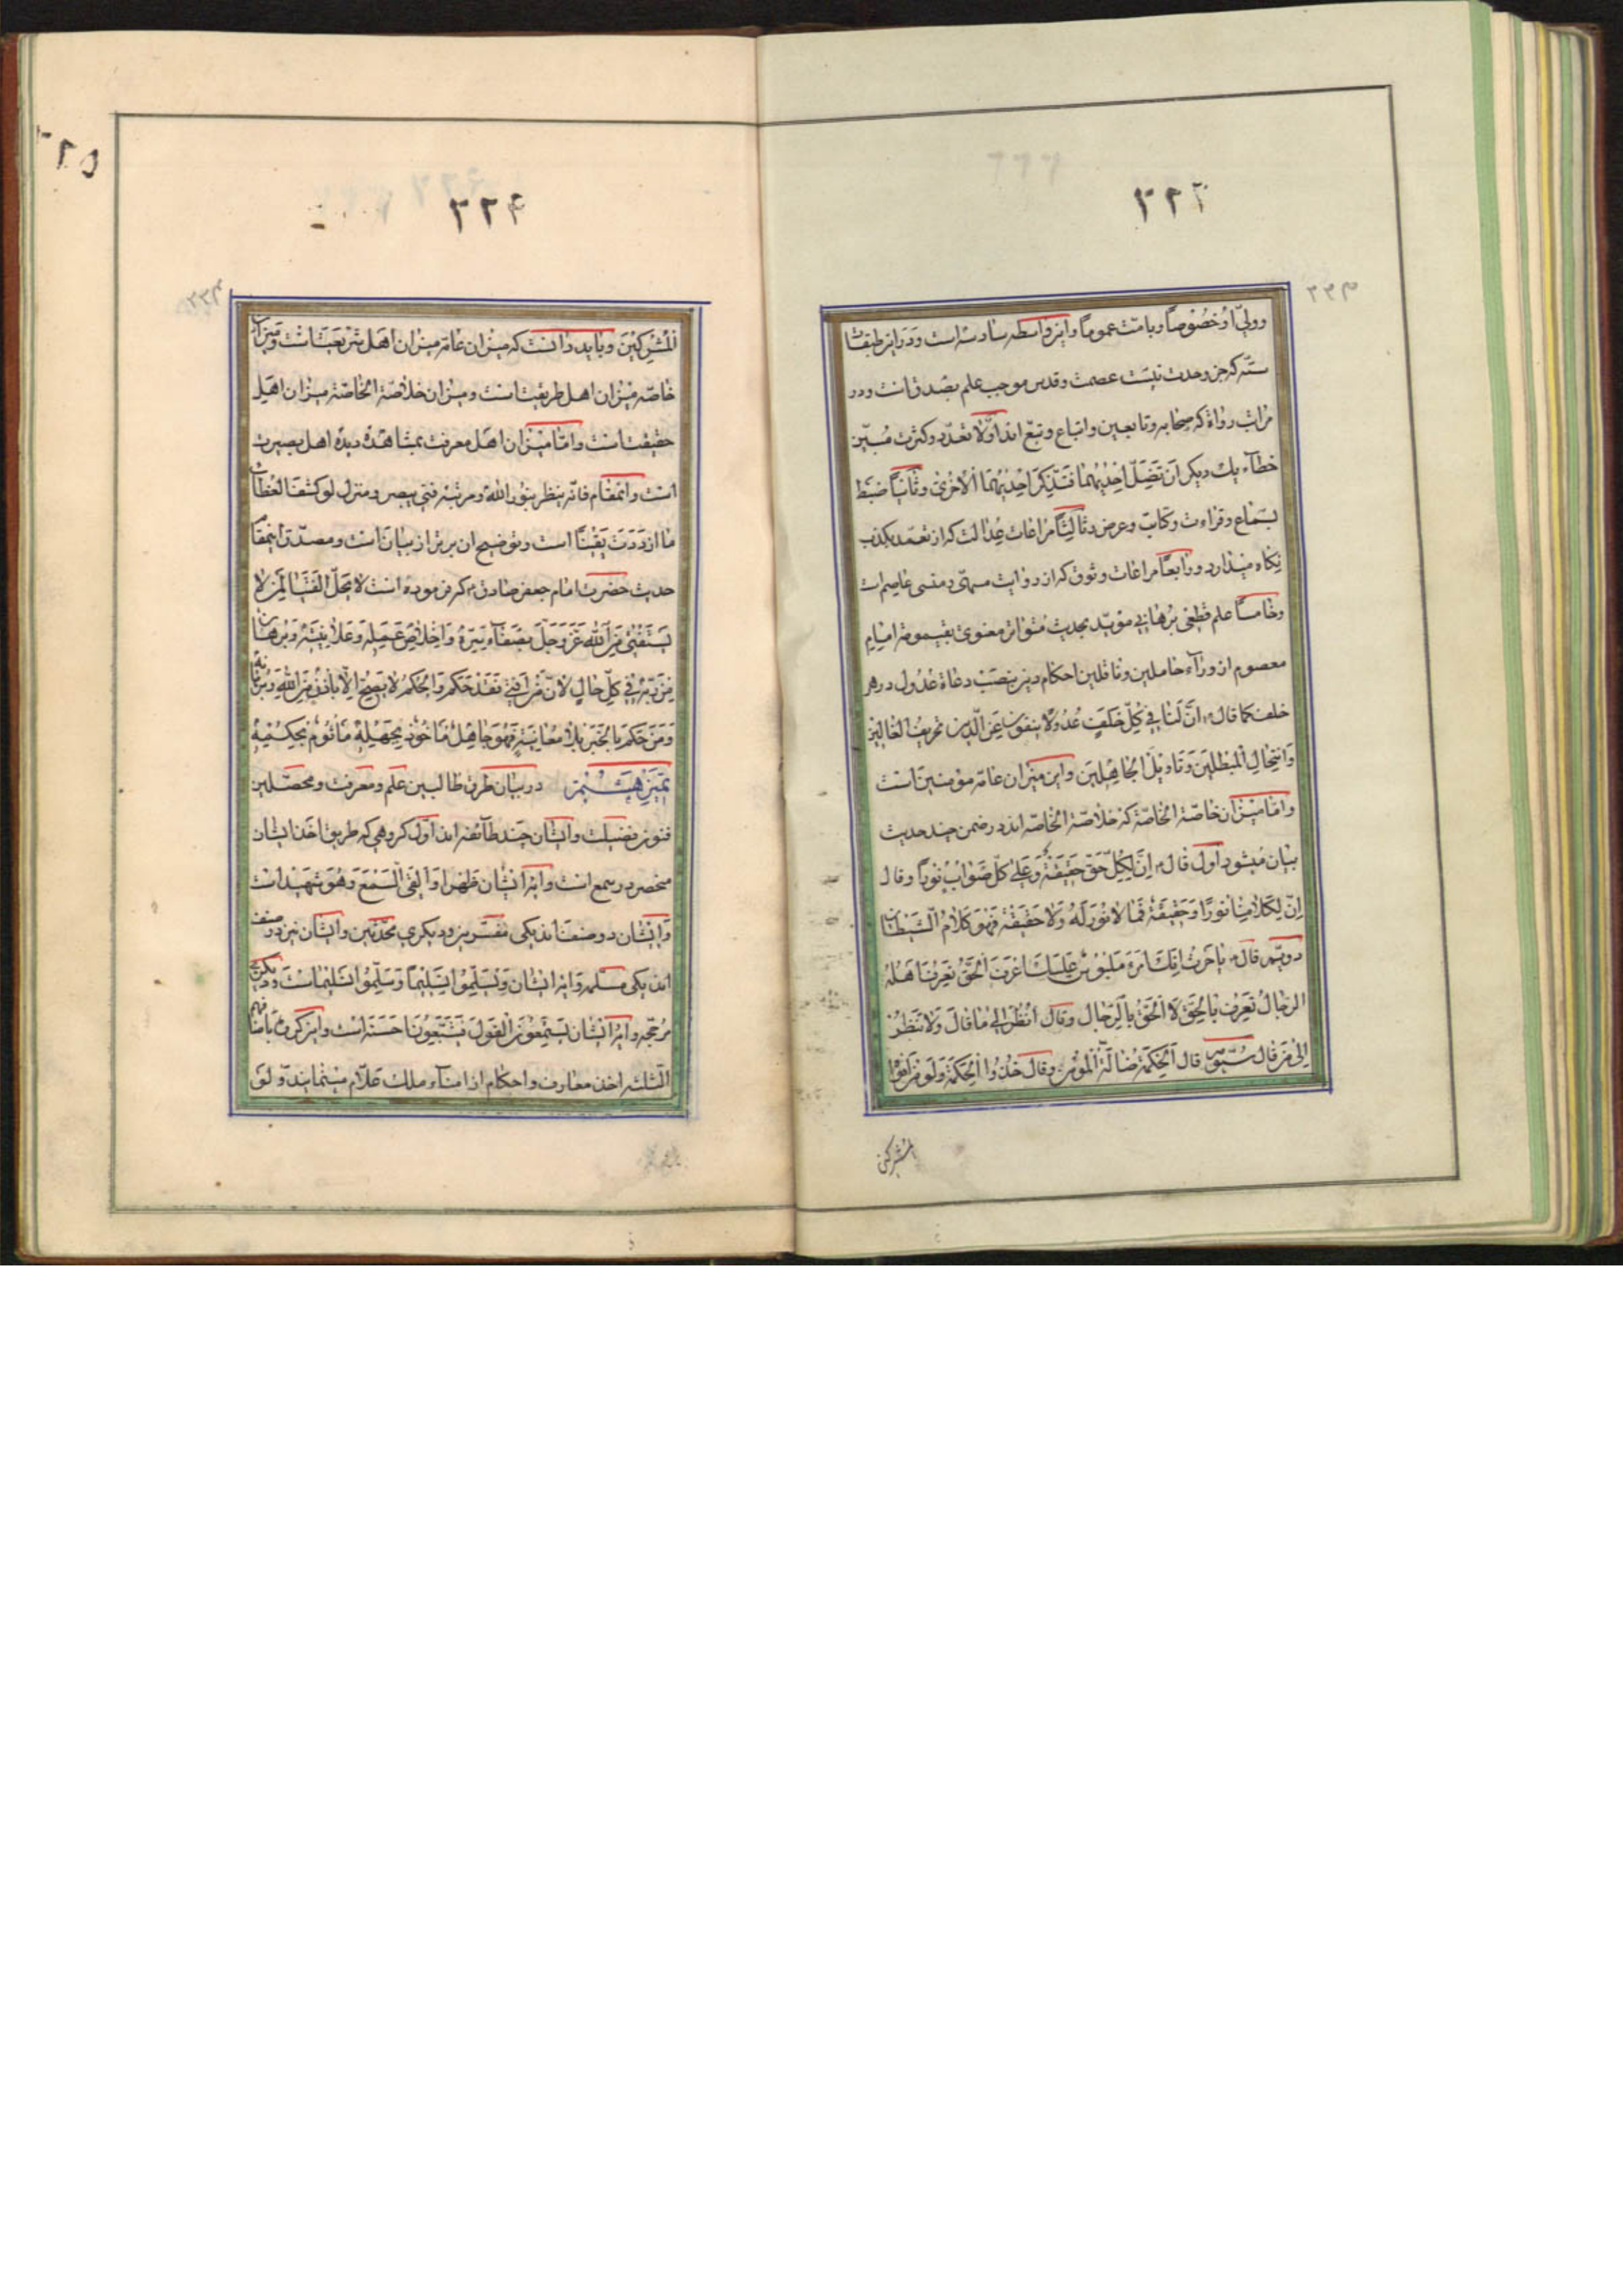 ۳۲۳
وولیّ او خُصُوصاً و بامّت عموماً و این واسطه سادسه است و دَر این طبقات
ستّه که جز وحدت نیست عصمت و قدس موجب علم بصدق انست و در
مراتب رواة که صحابه و تابعین و اتباع و تبّع اند اوّلا تعدّد و کثرت مُبیّن
خطآء یك دیگر اَن تَضِلَّ اِحْدٰیهُمٰا فَتُذَکِّرَ اِحْدٰیهُمَا الْاُخْریٰ و ثانیاً ضبط
بسَماع و قراءت و کتابت و عرض و ثالثاً مراعات عدالت که از تعمّد بکذب
نکاه میدارد و رابعاً مراعات وثوق که از روایت
و خامساً علم قطعی بُرهانی مؤیّد بحدیث مُتواتر معنوی بقیمومة امام
معصوم از ورآء حاملین و ناقلین احکام دین بنصَب دعاة عُدُول در هر
خلف کما قال ع اِنَّ لَنٰا فی کُلِّ خَلَفٍ عُدُولًا ینفون عَنِ الّدین تحریفَ الغٰالینَ
وَ انتِحٰالَ الْمُبْطِلینَ وَ تَاویلَ الجٰاهِلینَ و این میزان عامّه مؤمنین است
و امّا میزان خاصّة الخاصّة که خلاصة الخاصّه اند در ضمن چند حدیث
بیان میشود اوّل قال ع اِنَّ لِکُلِّ حَقٍّ حَقیقَةً وَ عَلیٰ کلِّ صَوٰابٍ نوراً و قال
اِنّ لِکَلامِنٰا نورًا وَ حَقیقَةً فَمٰا لا نُورَ لَهُ وَ لا حَقیقَةَ فَهُوَ کَلامُ الشَّیطٰان
دویّم قال ع یا حٰرث اِنّكَ امرَء مَلبُوسٌ عَلیَكَ اعْرِفِ الْحَقَّ تَعْرِفْ اَهلَهُ
الرّجٰالُ تُعرَفُ بالحَقِّ لَا الْحَقُّ بالرّجٰالِ و قال اُنْظُر الیٰ مٰا قٰالَ وَلا تَنظُرْ
اِلیٰ مَن قٰال سیّوم قال اَلْحِکمَة ضٰالَّةُ الْمُؤمِن و قال خُذُوا الْحِکمَةَ وَلَو مِن اَفوٰا
المشرکین
۳۲۴
الْمُشْرِکینَ و باید دانست که میزان عامّه میزان اهل شریعت است و میزان
خاصّه میزان اهل طریقت است و میزان خلاصة الخاصّه میزان اهل
حقیقت است و امّا میزان اهل معرفت بمشاهده دیدهٔ اهل بصیرت
است و اتمقام فانّه ینظر بنور اللهِ و مرتبهٔ فبی یبصر و منزل لو کشف الغطآء
ما ازدَدتُ یَقیناً است و توضیح ان برتر از بیان است و مصدّق اینمقام
حدیث حضرت امام جعفر صادق ع که فرموده است لا یَحلّ الفُتیٰا لِمَن لا
یَستَفتی مِنَ الله عَزَّ وَ جَلَّ بِصَفآءِ سِرِّهِ وَ اِخلاصِ عَمَلِهِ وَ عَلانِیَتِهِ وَ بُرهٰانٍ
مِن رَبِّهِ فی کلِّ حٰالٍ لاَنّ مَن اَفتیٰ فَقَد حَکَمَ وَ الحُکمُ لا یَصِحُّ اِلّا باِذنٍ مِنَ اللهِ وَ بُرهٰانِهِ
وَ مَن حَکَمَ بِالخَبَرِ بِلا مُعٰایَنَةٍ فَهُوَ جٰاهِلٌ مأخُوذٌ بِجَهْلِهِ مَأثُومٌ بِحُکمِهِ
تمیز هشتم در بیان طرق طالبین علم و معرفت و محصّلین
فنون فضیلت و ایشان چند طآئفه اند اوّل کروهی که طریق اخذ ایشان
منحصر در سمع است و ایهٔ ایشان ظهرا اَوْ اَلْقَی السَّمْعَ وَ هُوَ شَهید است
و ایشان دو صنف اند یکی مفسّرین و دیکری محدّثین و ایشان نیز دو صنف
اند یکی مسلّمه و ایهٔ ایشان وَ یُسَلِّمُوا تَسْلیماً وَ سَلِّمُوا تَسْلیماً است و دیکری
مرجّحه و ایهٔ ایشان یَسْتَمِعُونَ الْقَولَ فَیَتَّبِعُونَ اَحسَنَهُ است و این کروه باقسامهم
الثلثه اخذ معارف و احکام از امنآء ملك علّام مینمایند و لو